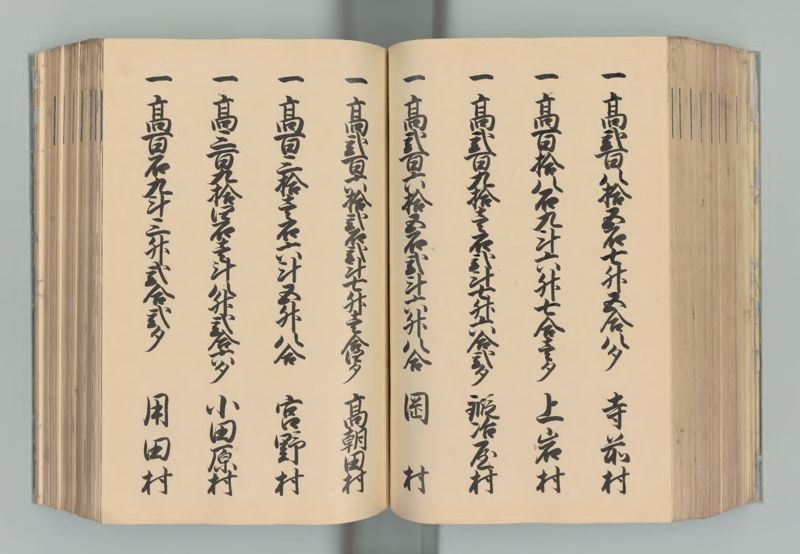 一 高弐百八拾五石七升五合八夕 寺前村
一 高百拾八石九斗六升七合壱夕 上岩村
一 高弐百九拾壱石弐斗七升六合弐夕 鍛冶屋村
一 高弐百六拾五石弐斗六升八合 岡村
一 高弐百八拾弐石弐斗七升壱合 高朝田村
一 高百三拾壱石六斗五升八合 宮野村
一 高三百九拾四石壱斗八升弐合六夕 小田原村
一 高百石九斗三升弐合弐夕 用田村